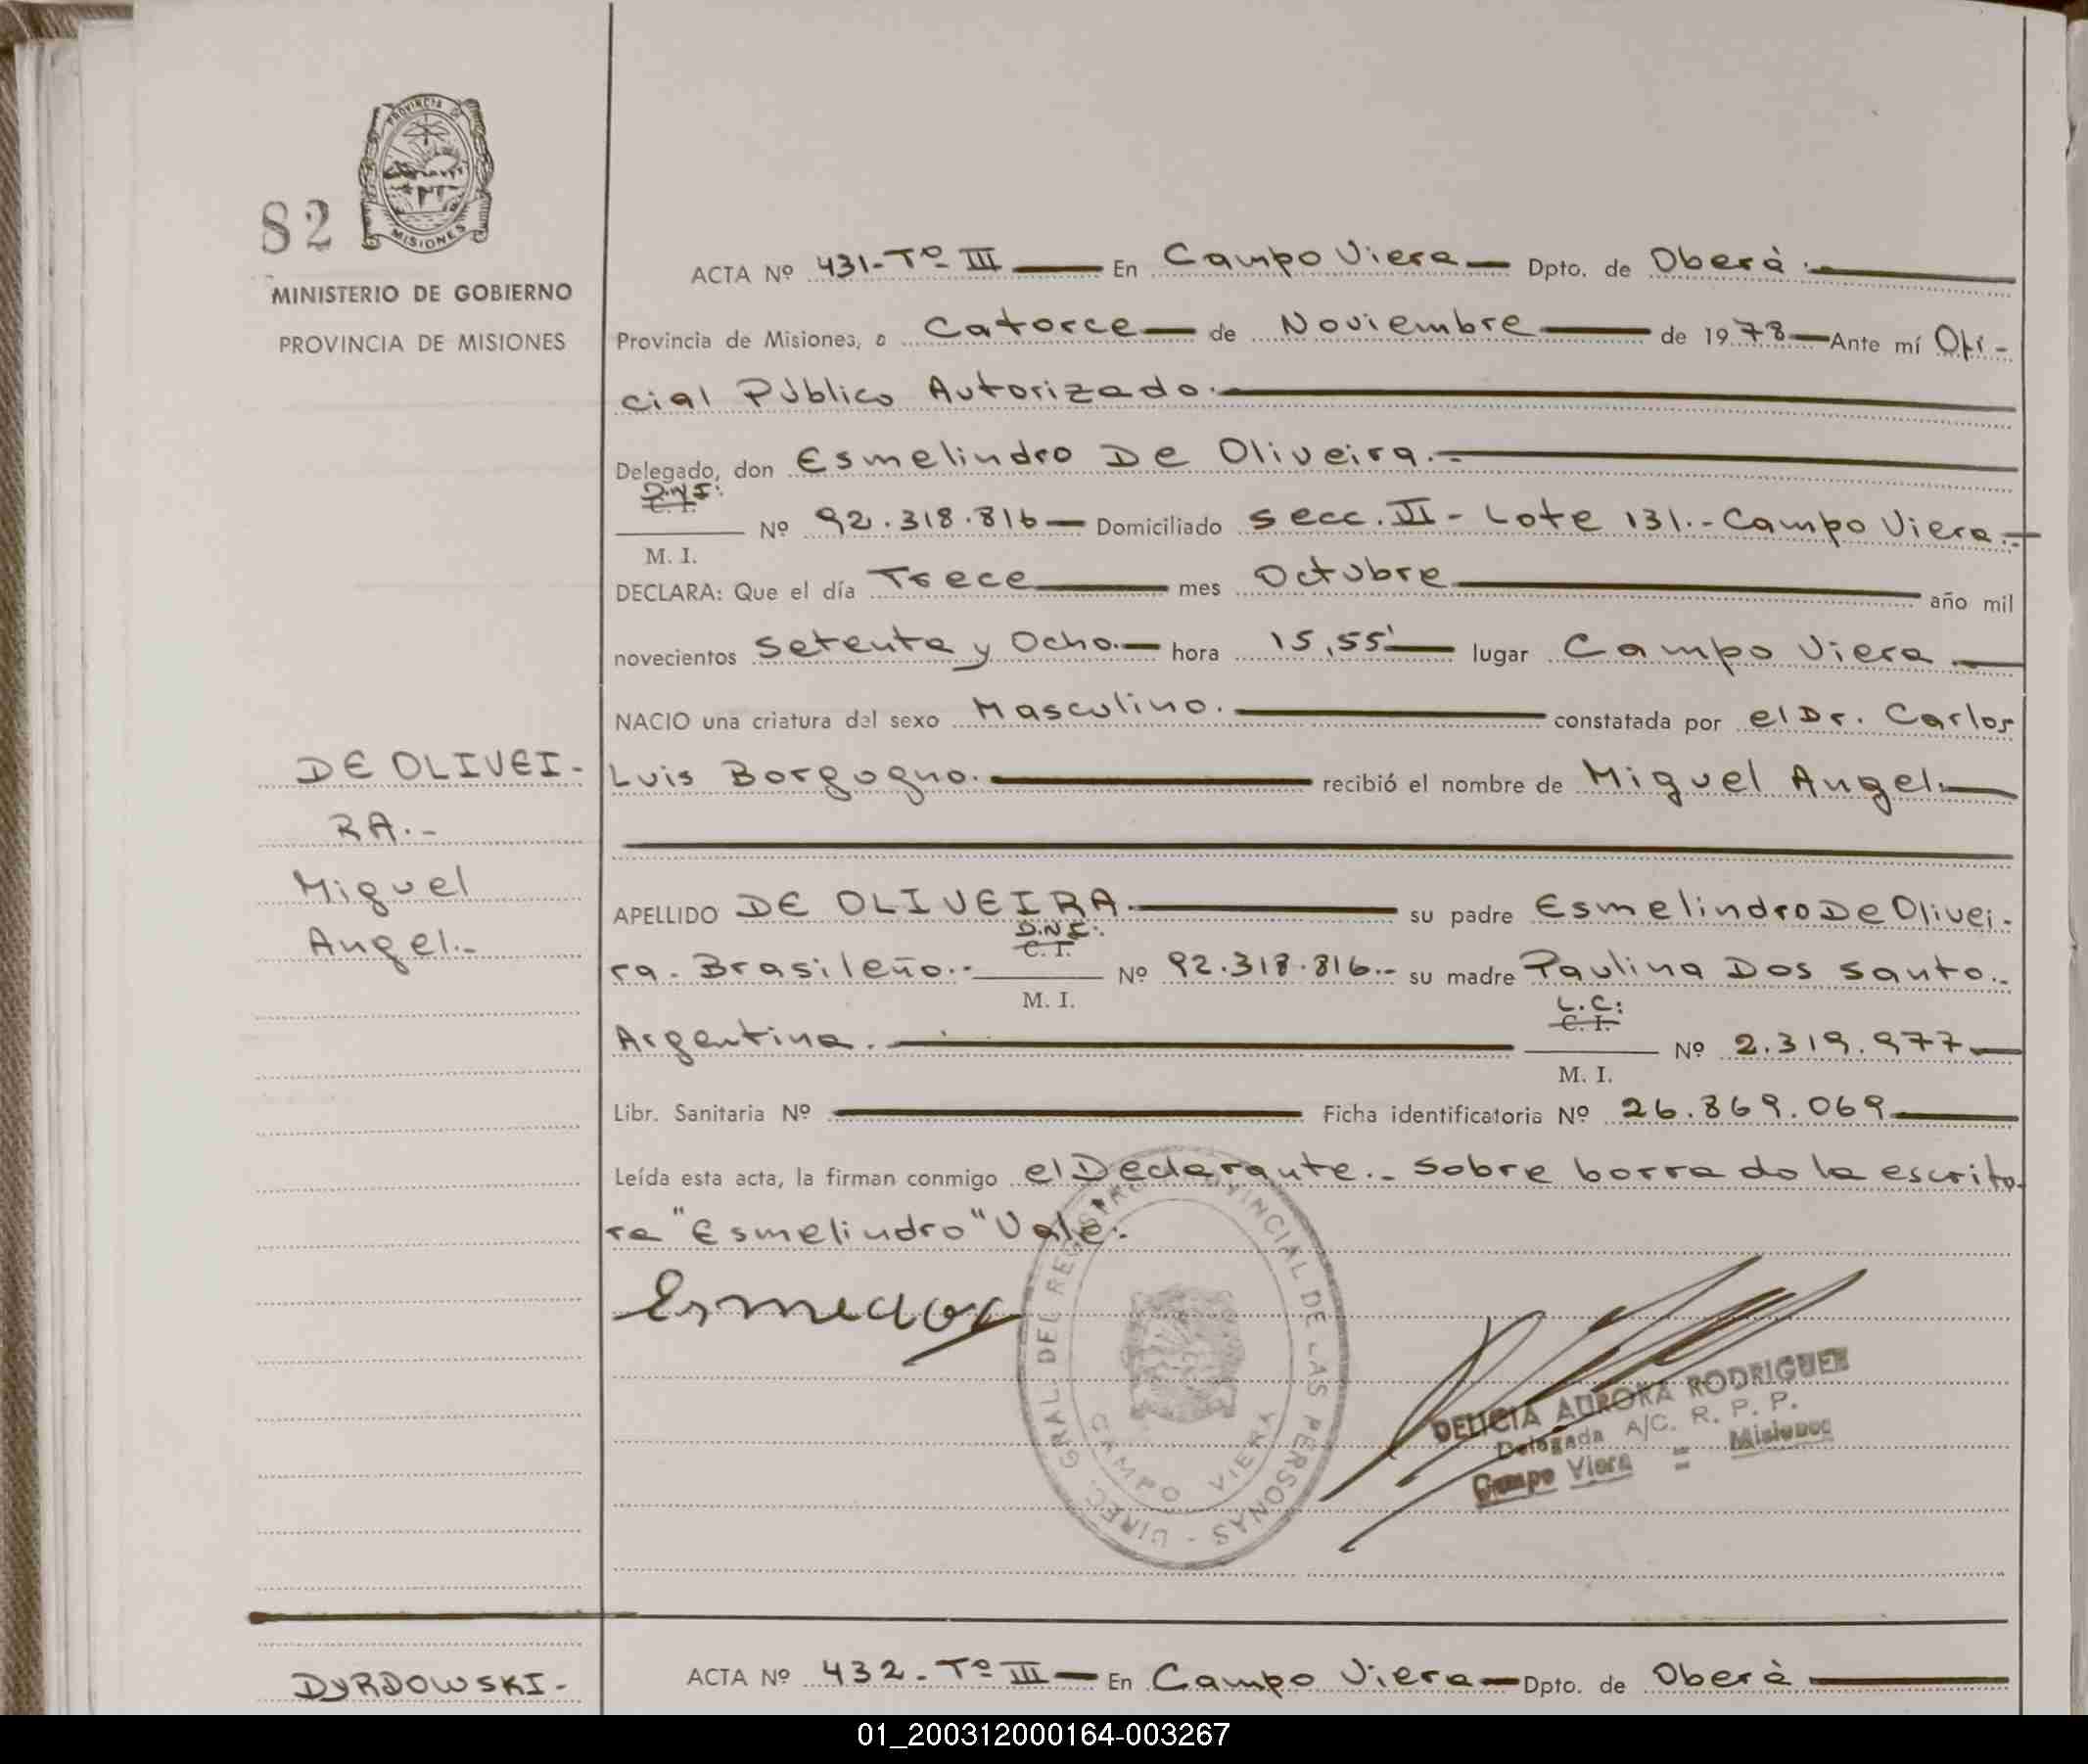 PROVINCIA DE
MISIONES
82
MINISTERIO DE GOBIERNO
PROVINCIA DE MISIONES
ACTA Nº 431-Tº III — En Campo Viera — Dpto. de Oberà.
Provincia de Misiones, a Catorce — de Noviembre — de 1978 — Ante mí Ofi-
cial Público Autorizado.
Delegado, don Esmelindro De Oliveira.-
D.N.I:
C. I.
Nº 92.318.816 — Domiciliado secc. VI - Lote 131.- Campo Viera.-
M. I.
DECLARA: Que el día Trece — mes Octubre — año mil
novecientos setenta y Ocho.— hora 15,55' — lugar Campo Viera —
NACIO una criatura del sexo Masculino. — constatada por el Dr. Carlos
Luis Borgogno. — recibió el nombre de Miguel Angel.—
DE OLIVEI-
RA.-
Miguel
Angel.-
APELLIDO DE OLIVEIRA. — su padre Esmelindro De Olivei-
D.N.I:
C. I.
ra. Brasileño.- Nº 92.318.816.- su madre Paulina Dos Santo.-
M. I.
L.C:
C. I.
Argentina. — Nº 2.319.977 —
M. I.
Libr. Sanitaria Nº — Ficha identificatoria Nº 26.869.069 —
Leída esta acta, la firman conmigo el Declarante.- Sobre borrado la escrito-
ra "Esmelindro" Vale.
DIREC. GRAL. DEL REGISTRO PROVINCIAL DE LAS PERSONAS -
CAMPO VIERA
DELICIA AURORA RODRIGUEZ
Delegada A/C. R. P. P.
Campo Viera = Misiones
DYRDOWSKI-
ACTA Nº 432-Tº III — En Campo Viera — Dpto. de Oberà —
01_200312000164-003267